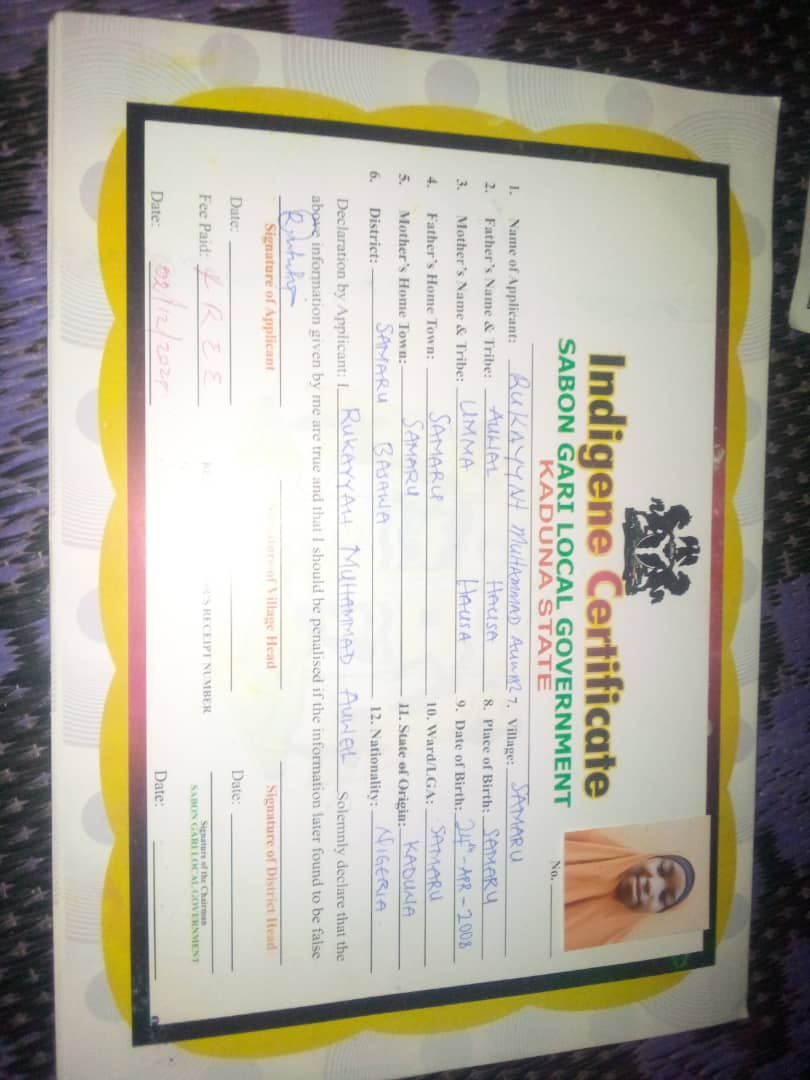 Indigene Certificate
SABON GARI LOCAL GOVERNMENT
KADUNA STATE
No.
1. Name of Applicant: RUKAYYAH MUHAMMAD
2. Father's Name & Tribe: AUWAL HAUSA
3. Mother's Name & Tribe: UMMA HAUSA
4. Father's Home Town: SAMARU
5. Mother's Home Town: SAMARU
6. District: SAMARU BASAWA
7. Village: SAMARU
8. Place of Birth: SAMARU
9. Date of Birth: 24th - APR - 2008
10. Ward/LGA: SAMARU
11. State of Origin: KADUNA
12. Nationality: NIGERIA
Declaration by Applicant: I RUKAYYAH MUHAMMAD Solemnly declare that the
above information given by me are true and that I should be penalised if the information later found to be false
Signature of Applicant
Signature of Village Head
Signature of District Head
Date:
Date:
Fee Paid: FREE
RECEIPT NUMBER
Signature of the Chairman
SABON GARI LOCAL GOVERNMENT
Date: 02/12/
Date: